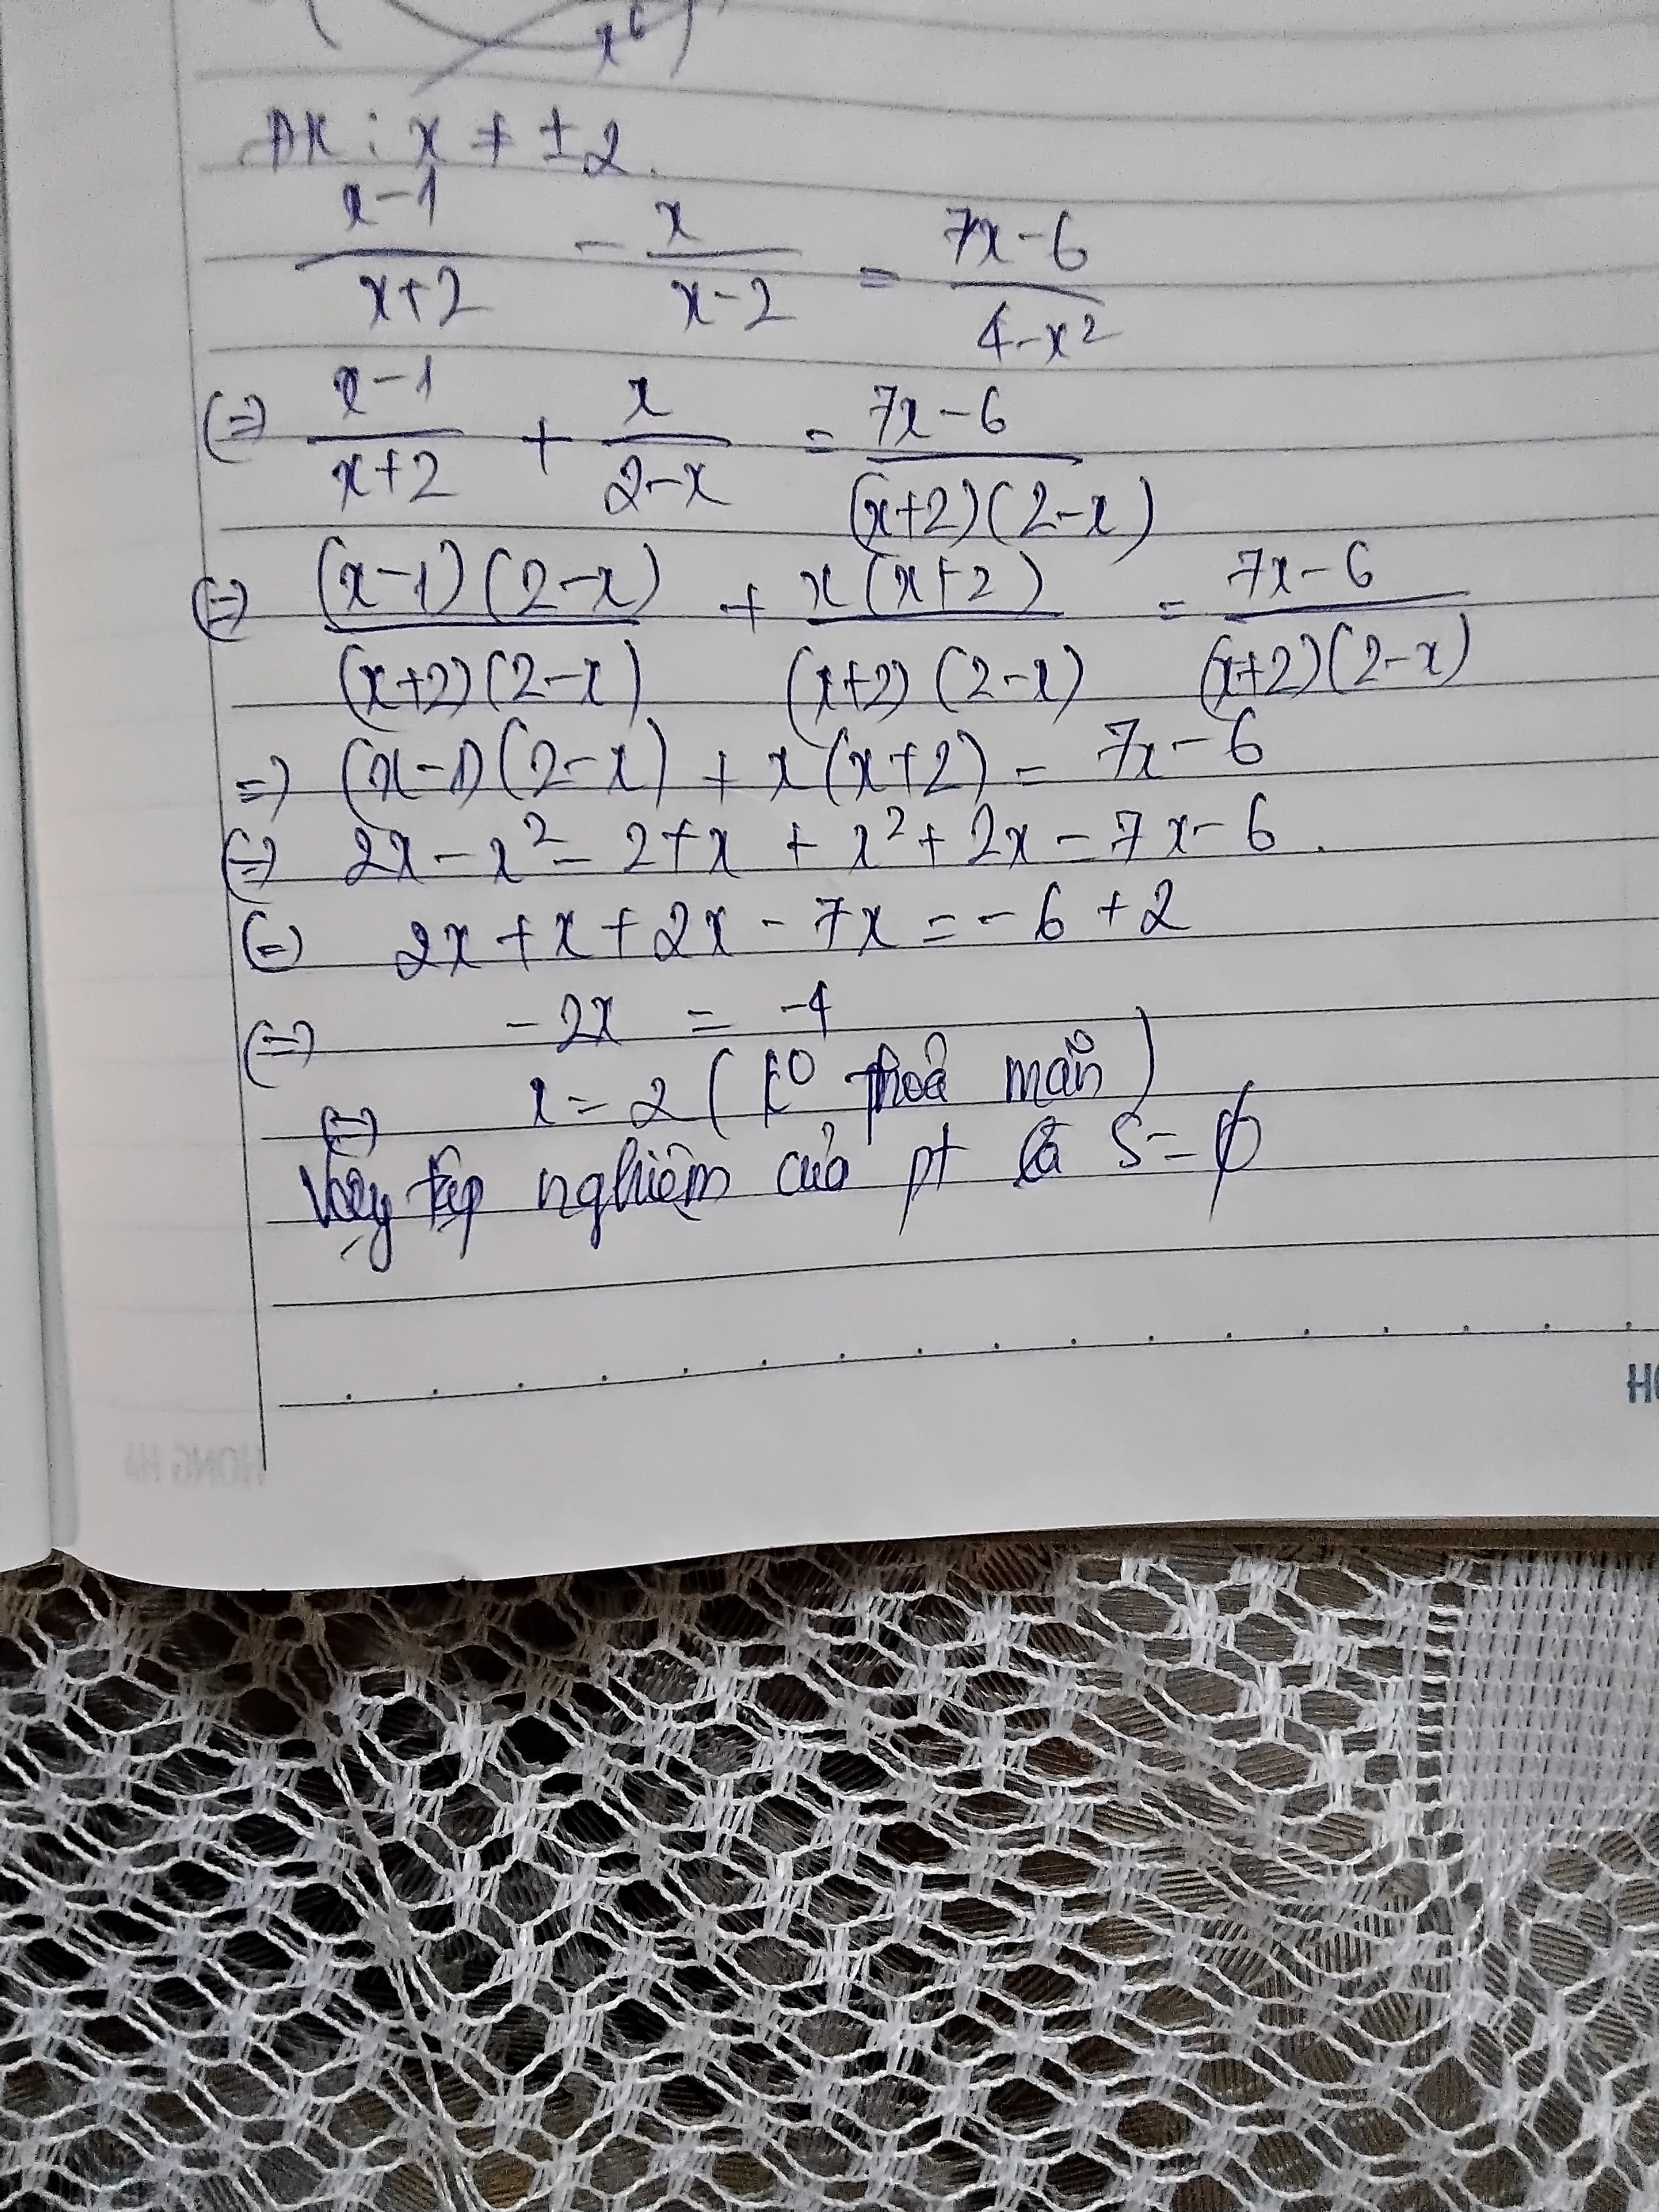 x⁶)
ĐK : x ≠ ±2.
\frac{x-1}{x+2} - \frac{x}{x-2} = \frac{7x-6}{4-x²}
(=) \frac{x-1}{x+2} + \frac{x}{2-x} = \frac{7x-6}{(x+2)(2-x)}
(=) \frac{(x-1)(2-x)}{(x+2)(2-x)} + \frac{x(x+2)}{(x+2)(2-x)} = \frac{7x-6}{(x+2)(2-x)}
=) (x-1)(2-x) + x(x+2) = 7x-6
(=) 2x - x² - 2 + x + x² + 2x = 7x - 6.
(=) 2x + x + 2x - 7x = -6 + 2
(=) -2x = -4
(=) x = 2 (k⁰ thoả mãn)
Vậy tập nghiệm của pt là S = ∅
HỒ
HONG HA